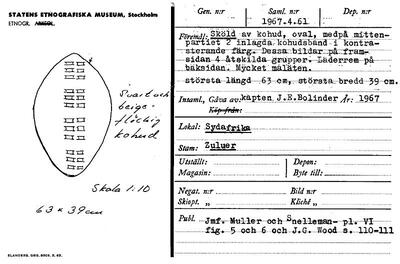 STATENS ETNOGRAFISKA MUSEUM, Stockholm
ETNOGR. AMSGL.
Svart och
beige-
fläckig
kohud
Skala 1:10
63 x 39 cm
ELANDERS, GBG. 2028. 5. 63.
Gen. n:r Saml. n:r Dep. n:r
1967.4.61
Föremål: Sköld av kohud, oval, medpå mitten-
partiet 2 inlagda kohudsbånd i kontra-
sterande färg. Dessa bildar på fram-
sidan 4 åtskilda grupper. Läderrem på
baksidan. Mycket maläten.
största längd 63 cm, största bredd 39 cm.
Insaml., Gåva av: kapten J.E.Bolinder År: 1967
Köp från:
Lokal: Sydafrika
Stam: Zuluer
Utställt: Depon:
Magasin: Byte till:
Negat. n:r Bild n:r
Skiopt. „ Kliché „
Publ. Jmf. Muller och Snelleman- pl. VI
fig. 5 och 6 och J.G. Wood s. 110-111